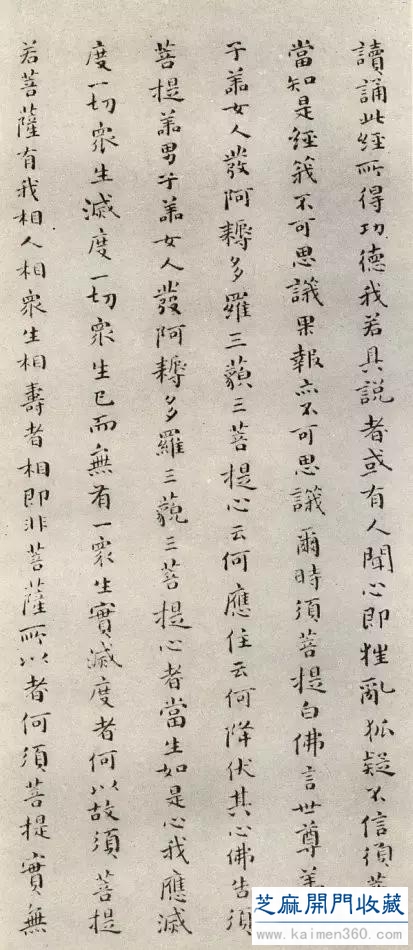 讀誦此經所得功德我若具說者或有人聞心即狂亂狐疑不信須菩
當知是經義不可思議果報亦不可思議爾時須菩提白佛言世尊善
子善女人發阿耨多羅三藐三菩提心云何應住云何降伏其心佛告須
菩提善男子善女人發阿耨多羅三藐三菩提心者當生如是心我應滅
度一切衆生滅度一切衆生已而無有一衆生實滅度者何以故須菩提
若菩薩有我相人相衆生相壽者相即非菩薩所以者何須菩提實無
芝麻開門收藏
www.kaimen360.com